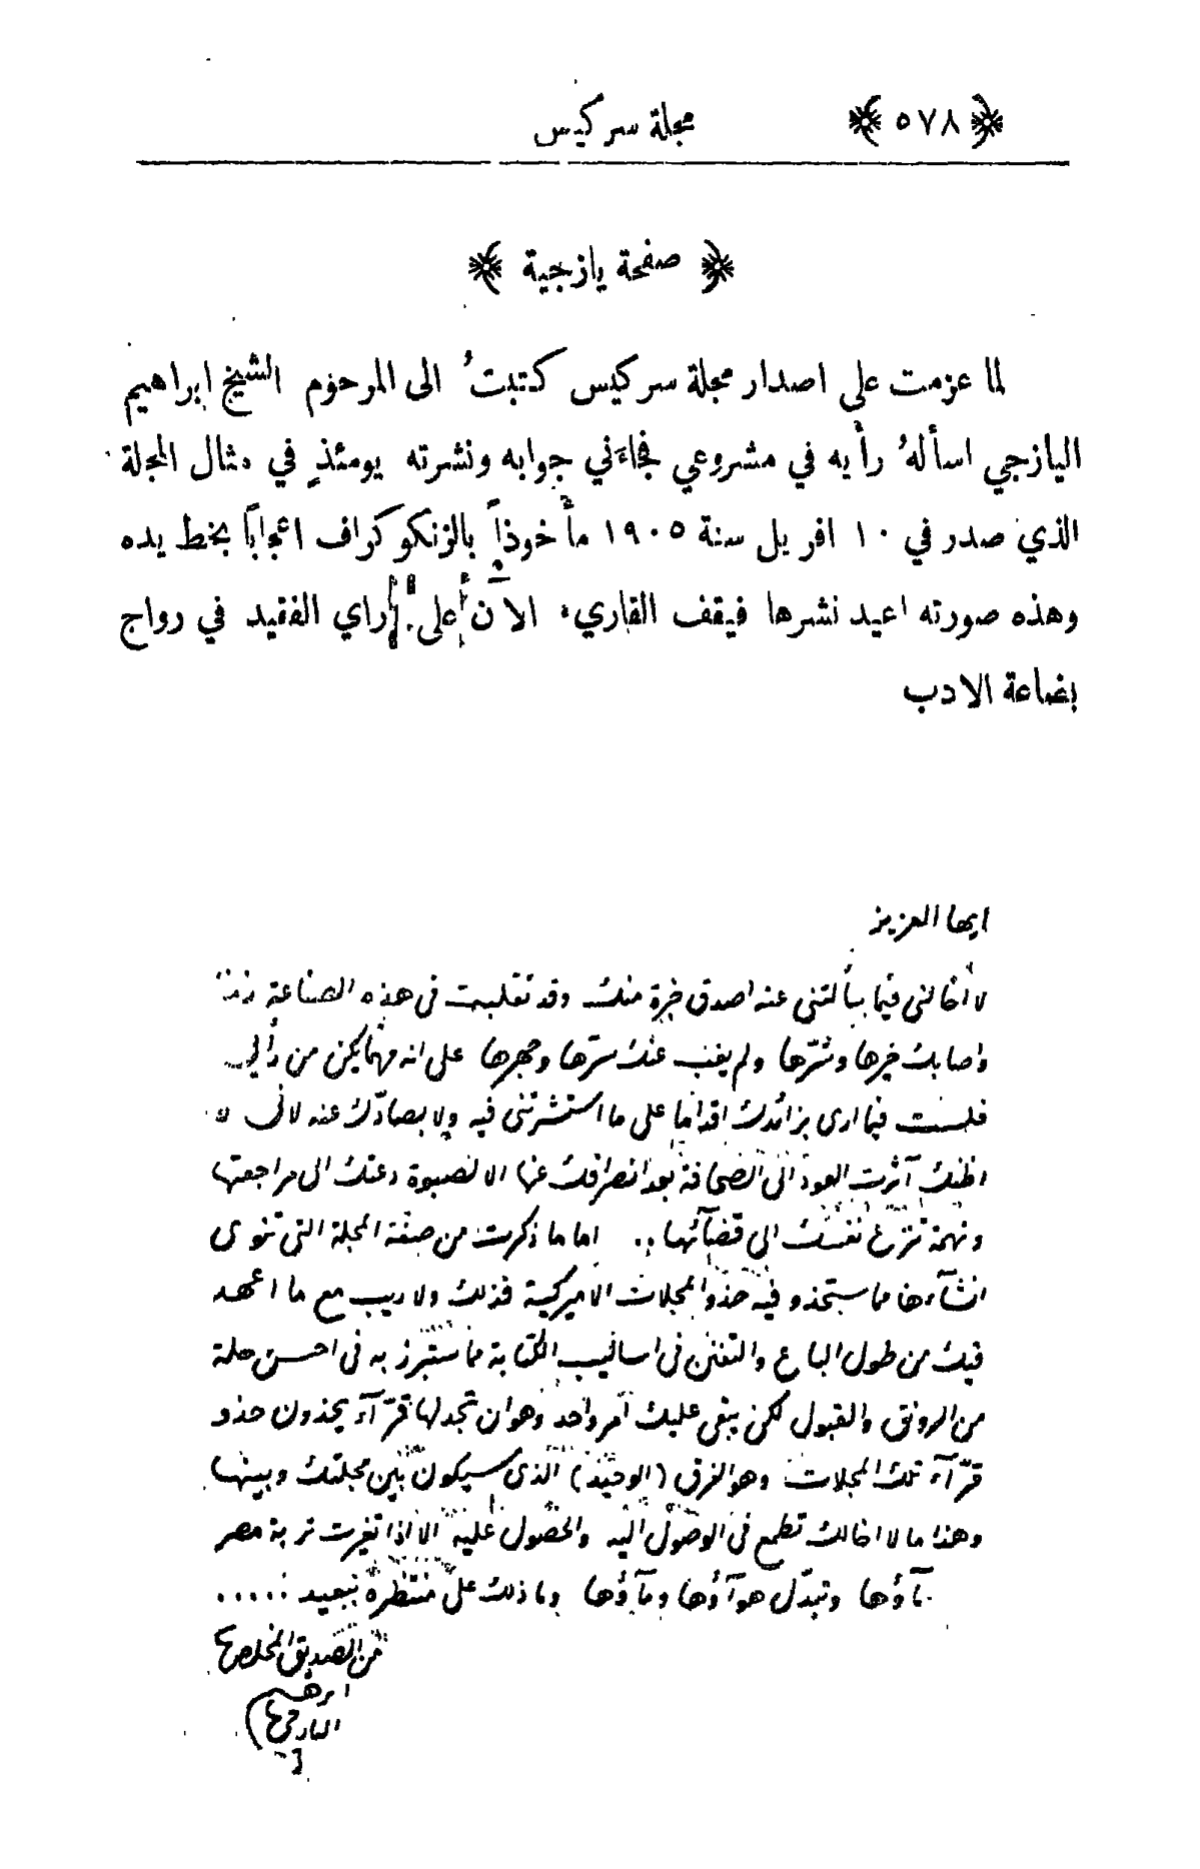 ﴿ ٥٧٨ ﴾ مجلة سركيس
﴿ صفحة يازجية ﴾
لما عزمت على اصدار مجلة سركيس كتبتُ الى المرحوم الشيخ ابراهيم
اليازجي اسألهُ رأيه في مشروعي فجاءَني جوابه ونشرته يومئذٍ في مثال المجلة
الذي صدر في ١٠ افريل سنة ١٩٠٥ مأخوذاً بالزنكوكراف اعجاباً بخط يده
وهذه صورته اعيد نشرها فيقف القاريء الآن على راي الفقيد في رواج
بضاعة الادب
ايها العزيز
لا اخالني فيما سألتني عنه اصدق خبرة منك وقد تقلبت في هذه الصناعة
واصابك خيرها وشرّها ولم يغب عنك سرّها وجهرها على انه مهما يكن من رأيي
فلست فيما ارى بزائدك اقداما على ما استشرتني فيه ولا بصادّك عنه لاني لا
اظنك آثرت العود الى الصحافة بعد انصرافك عنها الا لصبوة دعتك الى مراجعتها
ونهمة تنزع نفسك الى قضآئها .. اما ما ذكرت من صفة المجلة التي تنوي
انشآءها مما ستحذو فيه حذو المجلات الاميركية فذلك ولا ريب مع ما اعهد
فيك من طول الباع والتفنن في اساليب الكتابة مما ستبرز به في احسن حلة
من الرونق والقبول لكن بقي عليك امر واحد وهو ان تجد لها قرّآء يحذون حذو
قرّآء تلك المجلات وهو الفرق (الوحيد) الذي سيكون بين مجلتك وبينها
وهذا ما لا اخالك تطمع في الوصول اليه والحصول عليه الا اذا تغيرت تربة مصر
وسمآؤها وتبدّل هوآؤها ومآؤها وما ذلك على منتظره ببعيد .....
من الصديق المخلص
ابرهيم
اليازجي